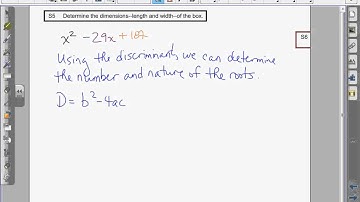 S5 Determine the dimensions--length and width--of the box.
x² - 29x + 187
S6
Using the discriminant, we can determine
the number and nature of the roots.
D = b² - 4ac